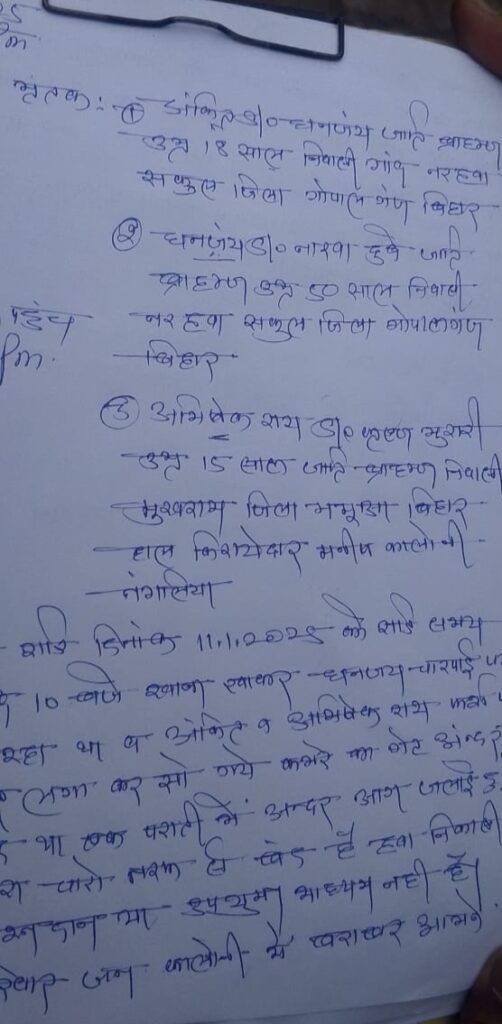 मृतक: ① अंकित S/o धनजंय जाति ब्राहमण
उम्र 18 साल निवासी गांव नरहवा
सकुल जिला गोपाल गंज बिहार
② धनजंय S/o नारवा दुबे जाति
ब्राहमण उम्र 50 साल निवासी
पहुंच नरहवा सकुल जिला गोपालगंज
Pm. बिहार
③ अभिषेक राय S/o कृष्ण मुरारी
उम्र 15 साल जाति ब्राहमण निवासी
जिला भभुआ बिहार
हाल किरायेदार मनीष कालोनी
नंगलिया
रात्रि दिनांक 11.1.2025 को रात्रि समय
10 बजे खाना खाकर धनजय चारपाई
रहा था व अंकित व अभिषेक राय फर्श
लगा कर सो गये कमरे का गेट अन्दर
था एक परात में अन्दर आग जलाई
चारो तरफ से बंद है हवा निकासी
माध्यम नही है।
जन कालोनी में बराबर आमने